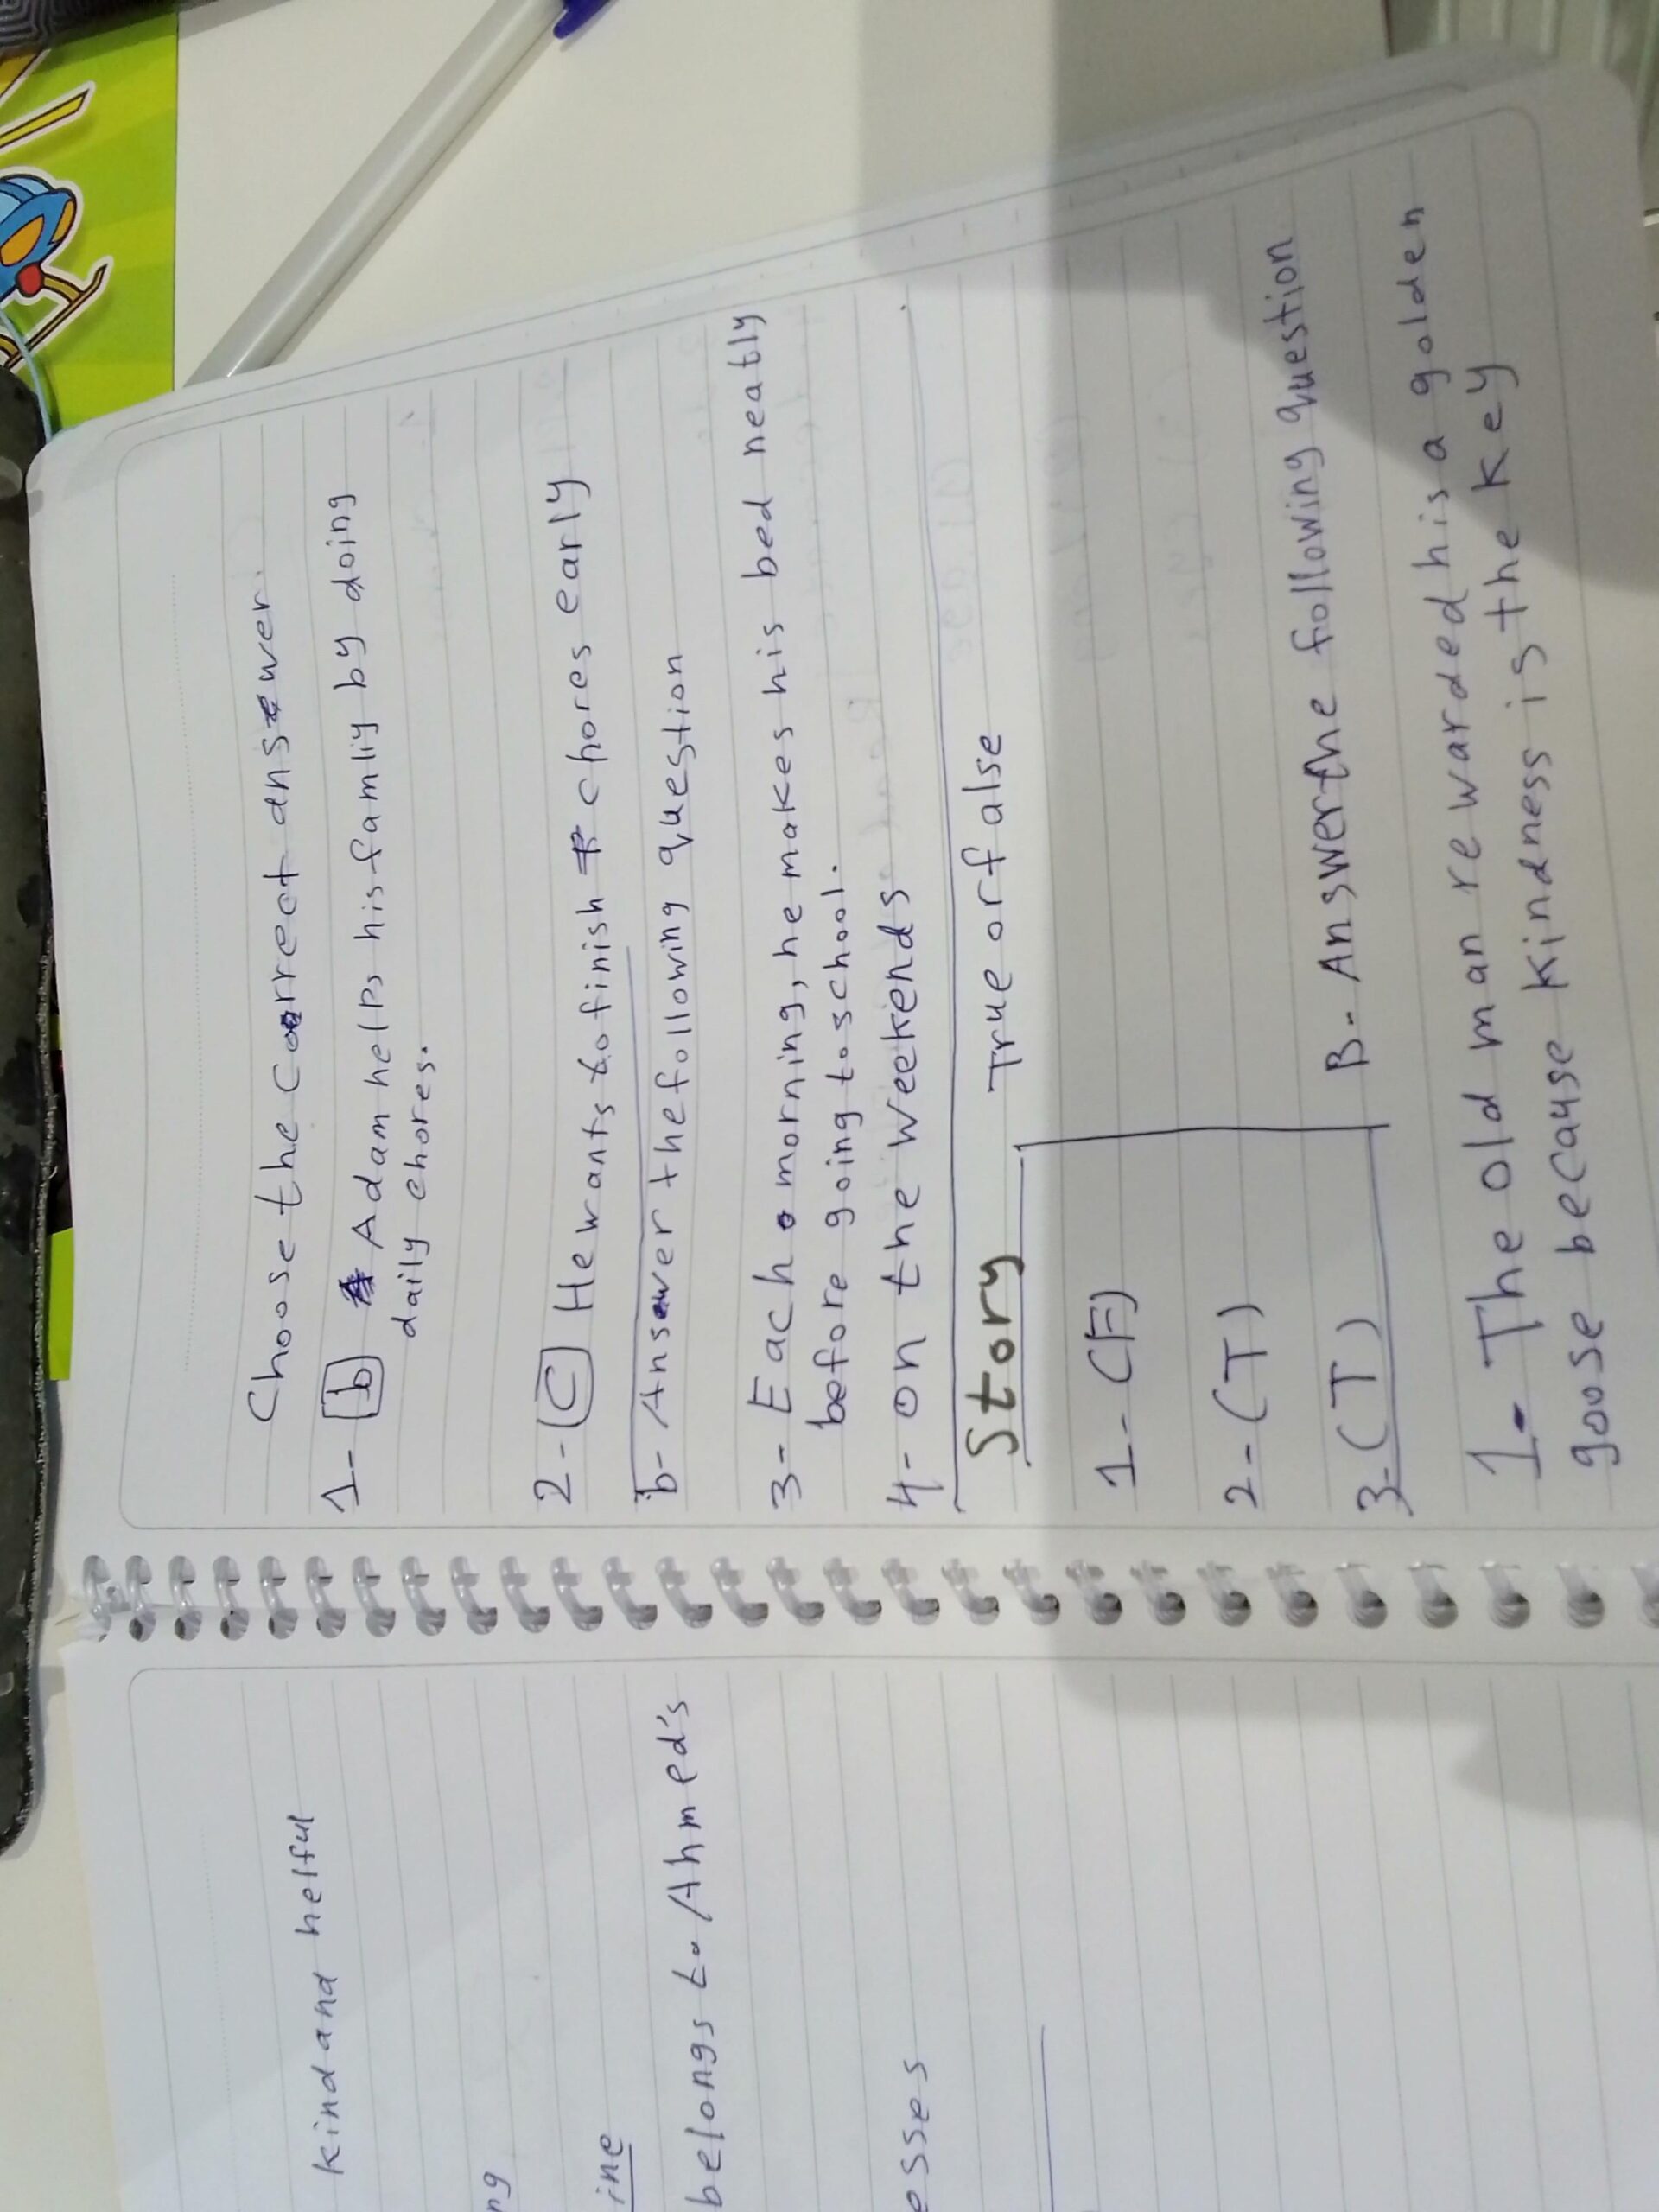 Choose the Correct answer.
1- b Adam helps his famliy by doing
daily chores.
2- C He wants to finish chores early
b- Answer the following question
3- Each morning, he makes his bed neatly
before going to school.
4- on the weekends
Story True or false
1- (F)
2- (T)
3- (T) B- Answer the following question
1- The old man rewarded his a golden
goose because kindness is the key
kind and helful
ng
ine
belongs to Ahmed's
esses